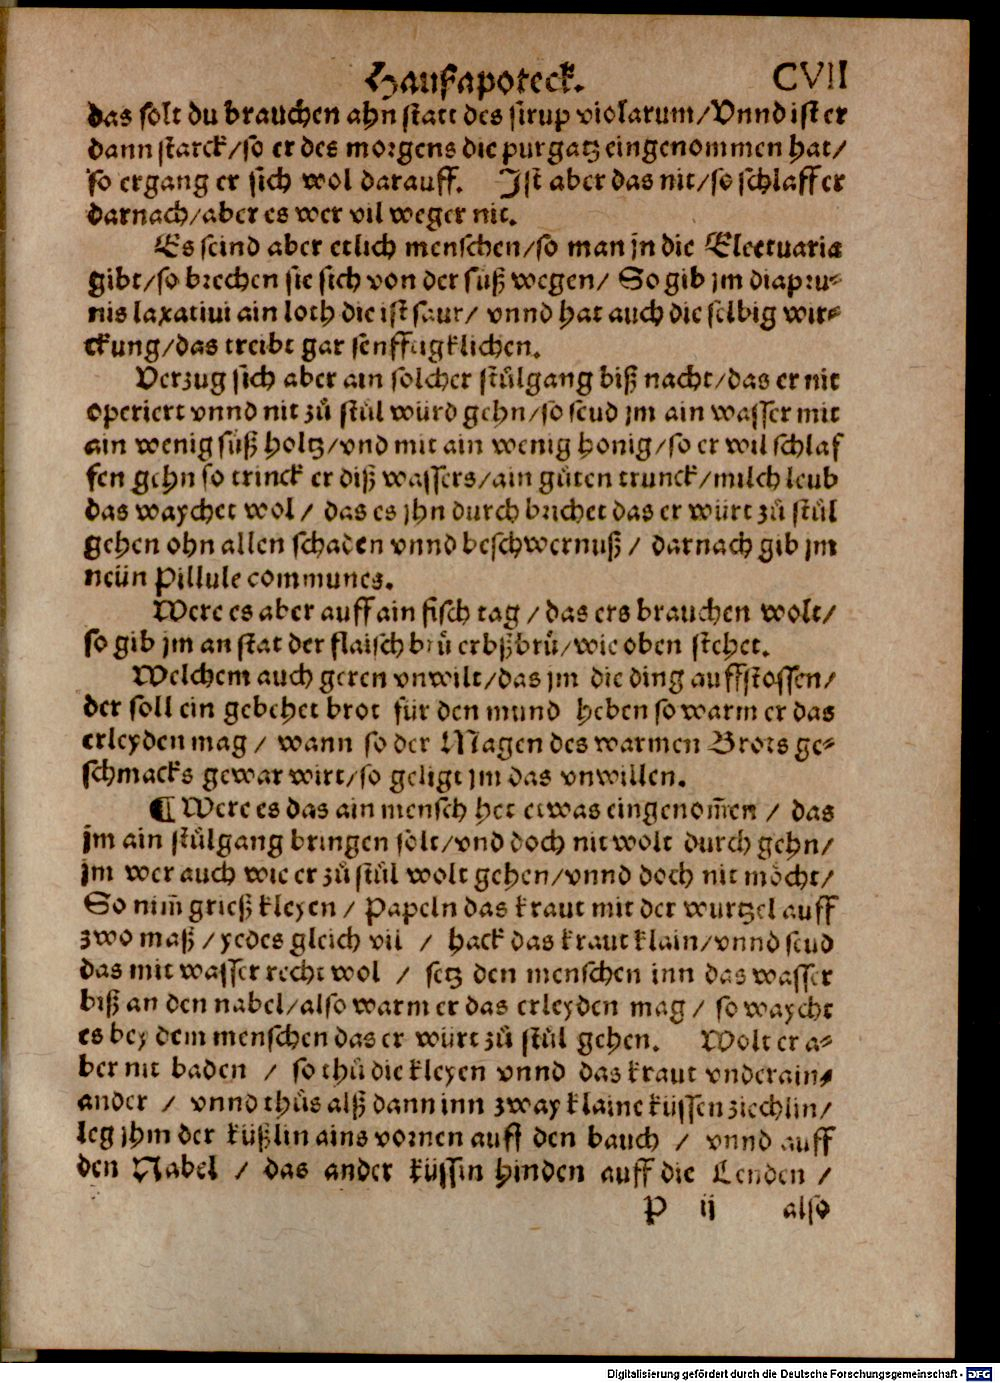 Haußapoteck. CVII
das solt du brauchen ahn statt des sirup violarum/Vnnd ist er
dann starck/so er des morgens die purgatz eingenommen hat/
so ergang er sich wol darauff. Ist aber das nit/so schlaff er
darnach/aber es wer vil weger nit.
Es seind aber etlich menschen/so man jn die Electuaria
gibt/so brechen sie sich von der süß wegen/ So gib jm diapru⸗
nis laxatiui ain loth die ist saur/ vnnd hat auch die selbig wir⸗
ckung/das treibt gar senfftigklichen.
Verzug sich aber ain solcher stůlgang biß nacht/das er nit
operiert vnnd nit zů stůl würd gehn/so seud jm ain wasser mit
ain wenig süß holtz/vnd mit ain wenig honig/so er wil schlaf
fen gehn so trinck er diß wassers/ain gůten trunck/milch leub
das waychet wol/ das es jhn durch brichet das er würt zů stůl
gehen ohn allen schaden vnnd beschwernuß/ darnach gib jm
neün Pillule communes.
Were es aber auff ain fisch tag/das ers brauchen wolt/
so gib jm an stat der flaisch brů erbßbrů/wie oben stehet.
Welchem auch geren vnwilt/das jm die ding auffstossen/
der soll ein gebehet brot für den mund heben so warm er das
erleyden mag/ wann so der Magen des warmen Brots ge⸗
schmacks gewar wirt/so geligt jm das vnwillen.
¶ Were es das ain mensch het etwas eingenom̃en/ das
jm ain stůlgang bringen solt/vnd doch nit wolt durch gehn/
jm wer auch wie er zů stůl wolt gehen/vnnd doch nit möcht/
So nim̃ grieß kleyen/ Papeln das kraut mit der wurtzel auff
zwo maß/yedes gleich vil / hack das kraut klain/vnnd seud
das mit wasser recht wol / setz den menschen inn das wasser
biß an den nabel/also warm er das erleyden mag/ so waycht
es bey dem menschen das er würt zů stůl gehen. Wolt er a⸗
ber nit baden / so thů die kleyen vnnd das kraut vnderain⸗
ander / vnnd thůs alß dann inn zway klaine küssen ziechlin/
leg jhm der küßlin ains vornen auff den bauch / vnnd auff
den Nabel / das ander küssin hinden auff die Lenden /
P ij also
Digitalisierung gefördert durch die Deutsche Forschungsgemeinschaft - DFG